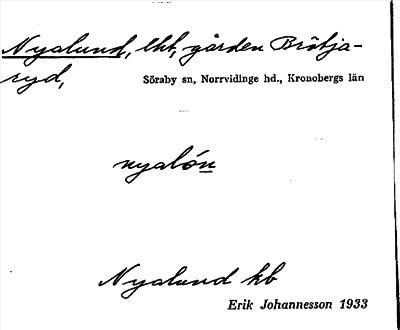 Nyalund, lht, gården Bröbja-
ryd,
Söraby sn, Norrvidinge hd., Kronobergs län
nyalón
Nyalund kb
Erik Johannesson 1933